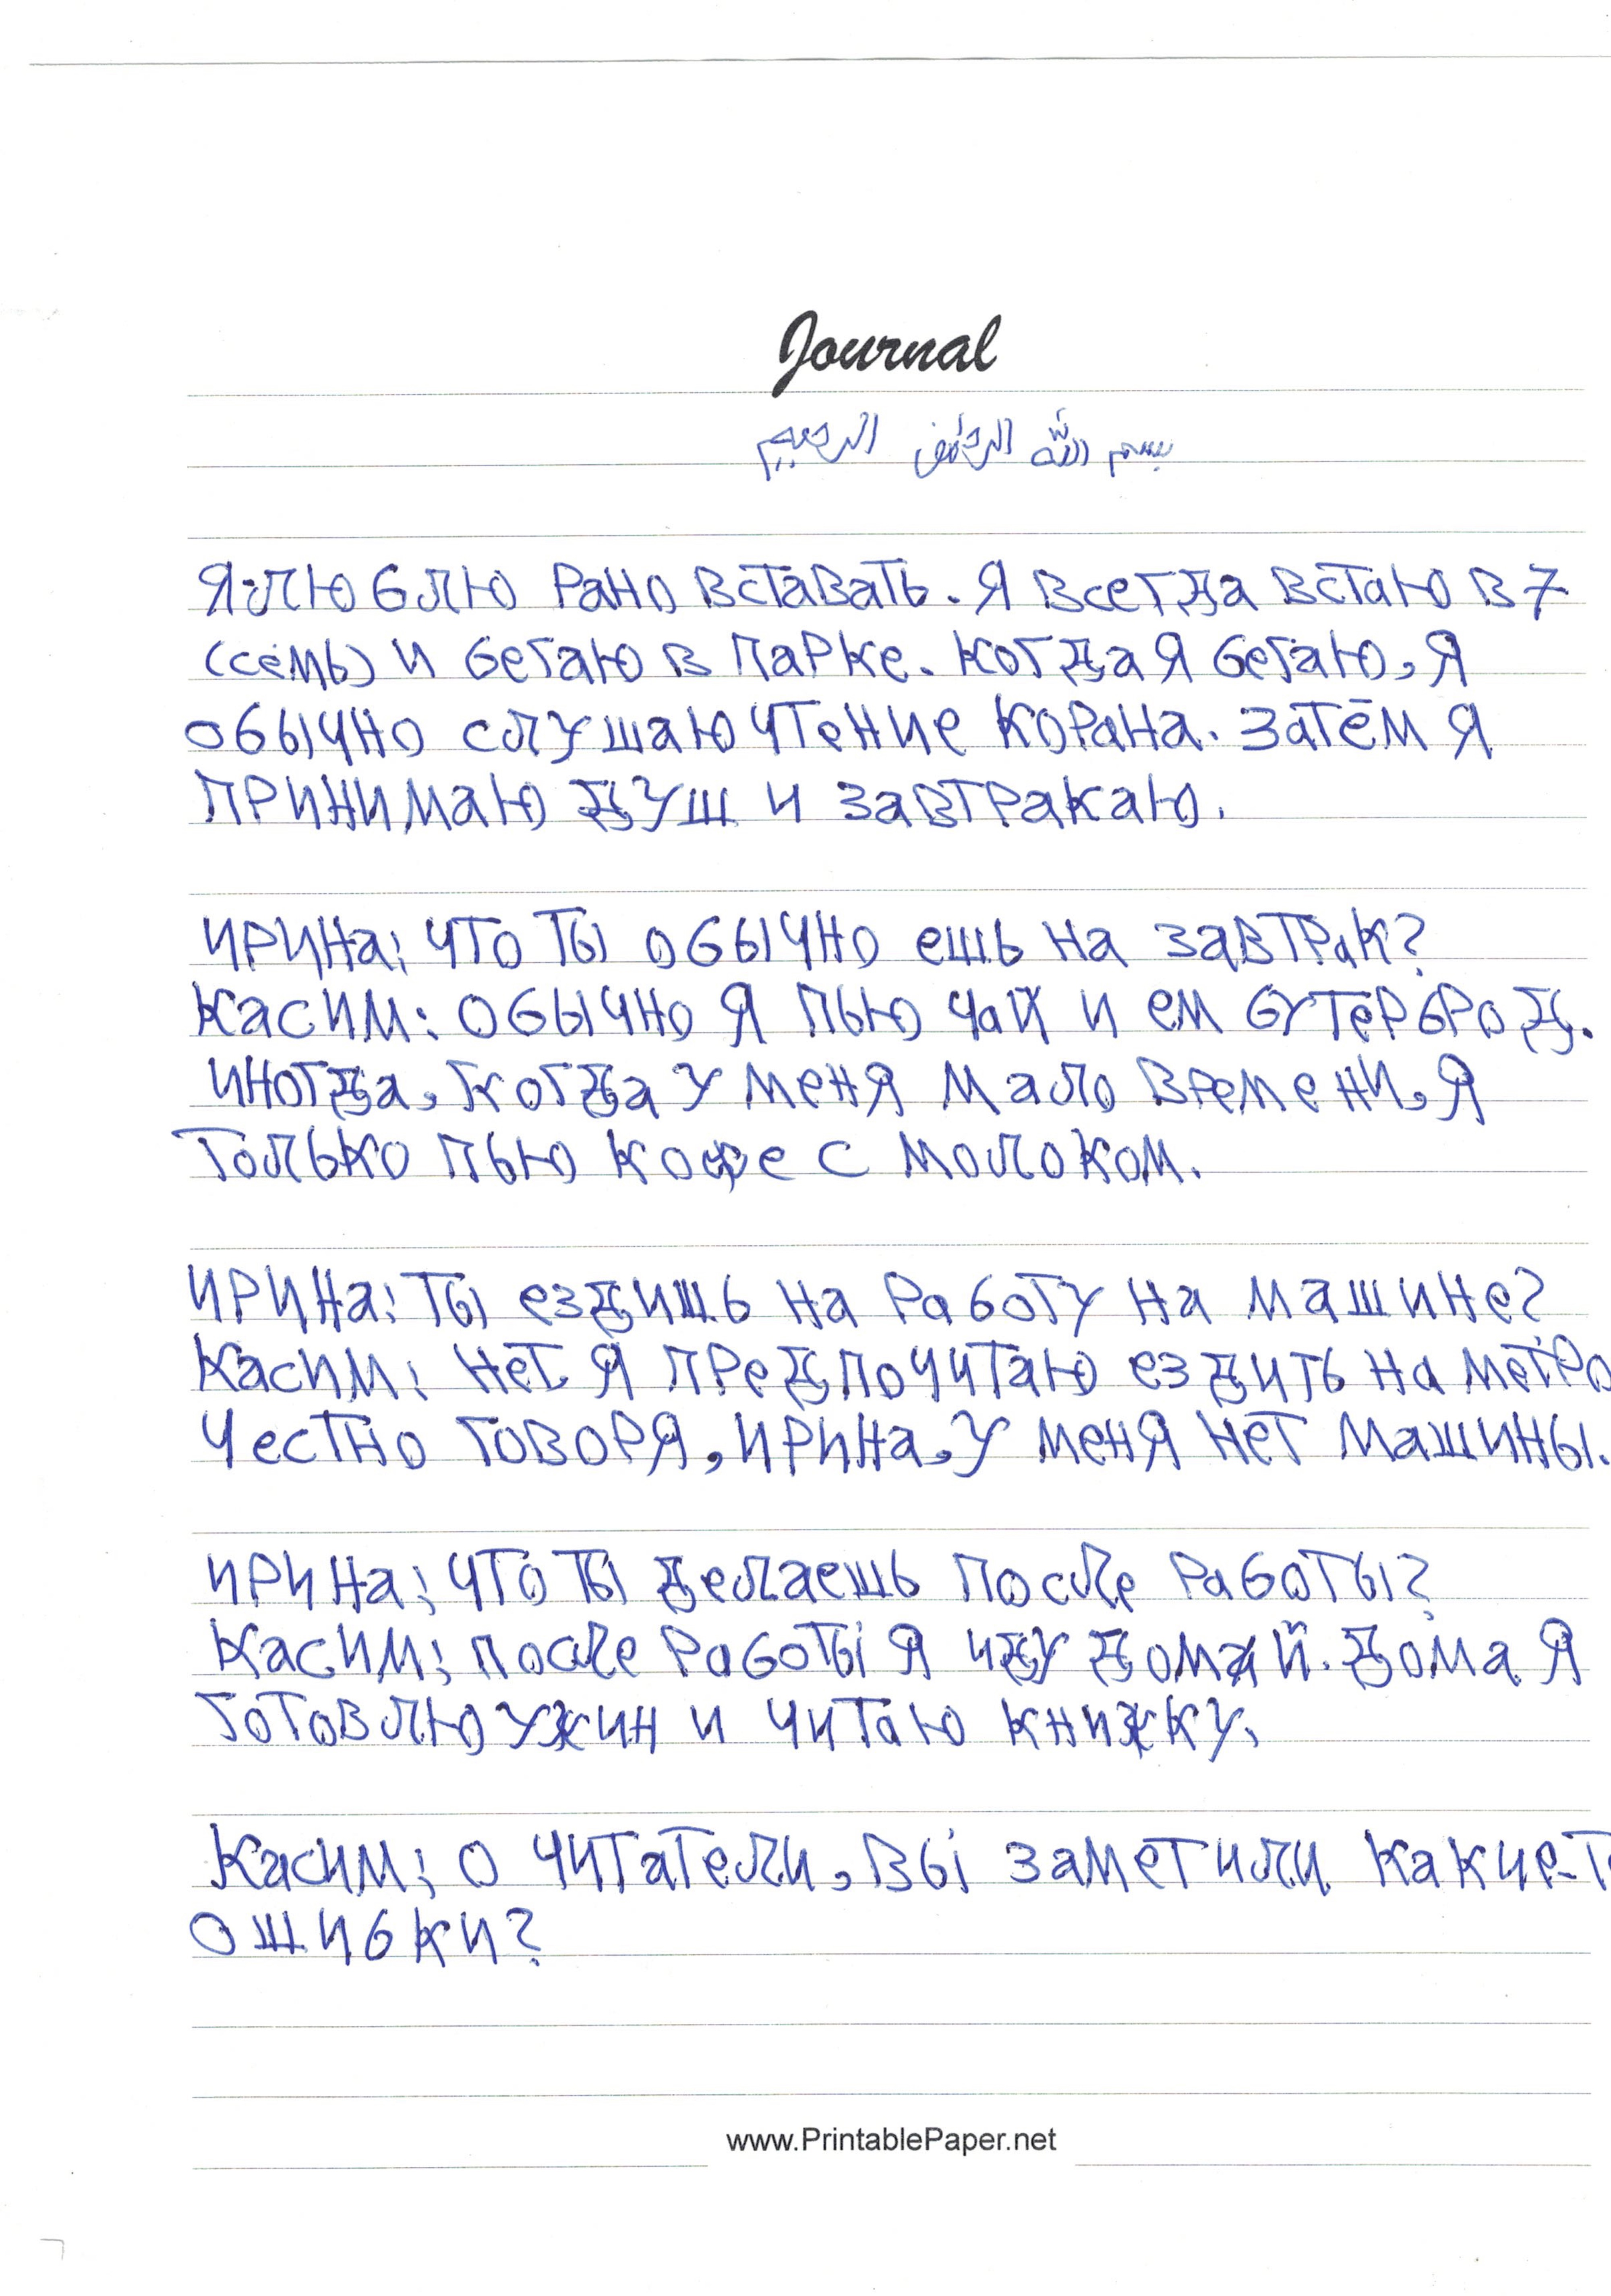 Journal
بسم الله الرحمن الرحيم
Я люблю рано вставать. Я всегда встаю в 7
(семь) и бегаю в парке. Когда я бегаю, я
обычно слушаю чтение Корана. Затем я
принимаю душ и завтракаю.
Ирина: что ты обычно ешь на завтрак?
Касим: обычно я пью чай и ем бутерброд.
иногда, когда у меня мало времени, я
только пью кофе с молоком.
Ирина: ты ездишь на работу на машине?
Касим: нет. я предпочитаю ездить на метро
честно говоря, Ирина, у меня нет машины.
Ирина: что ты делаешь после работы?
Касим: после работы я иду домай. дома я
готовлю ужин и читаю книжку.
Касим: о читатели, вы заметили какие-т
ошибки?
www.PrintablePaper.net